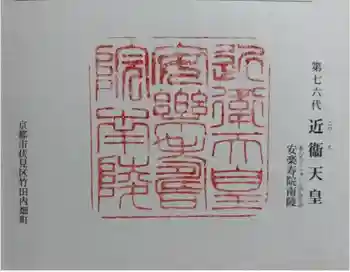 第七六代
近衞天皇
安楽寿院南陵
近衛天皇
安樂壽
院南陵
京都市伏見区竹田内畑町